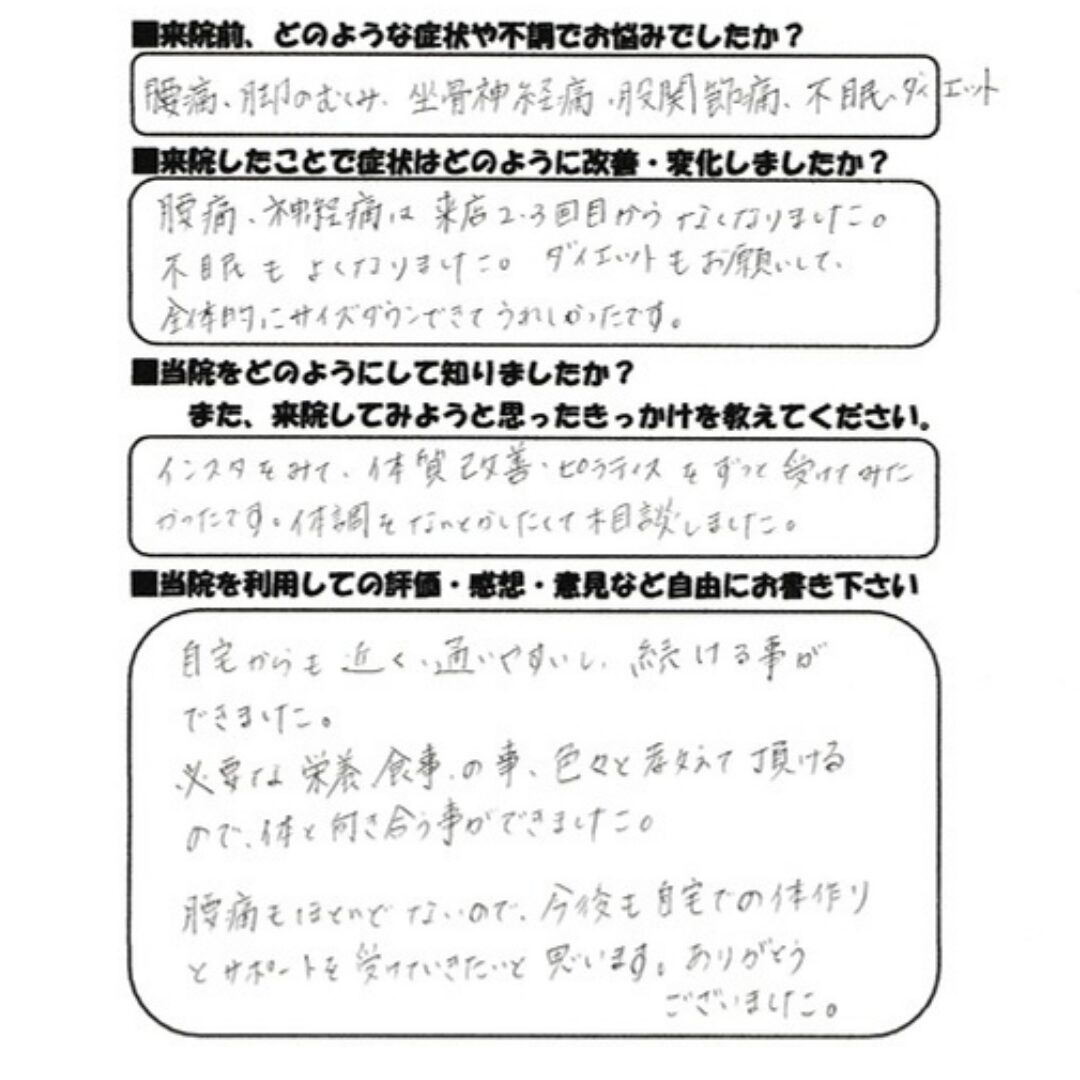 ■来院前、どのような症状や不調でお悩みでしたか？
腰痛、脚のむくみ、坐骨神経痛、股関節痛、不眠、ダイエット
■来院したことで症状はどのように改善・変化しましたか？
腰痛、神経痛は来店2.3回目からなくなりました。
不眠もよくなりました。ダイエットもお願いして、
全体的にサイズダウンできてうれしかったです。
■当院をどのようにして知りましたか？
また、来院してみようと思ったきっかけを教えてください。
インスタをみて、体質改善・ピラティスをずっと受けてみた
かったです。体調をなんとかしたくて相談しました。
■当院を利用しての評価・感想・意見など自由にお書き下さい
自宅からも近く、通いやすいし、続ける事が
できました。
必要な栄養、食事、の事、色々と教えて頂ける
ので、体と向き合う事ができました。
腰痛もほとんどないので、今後も自宅での体作り
とサポートを受けていきたいと思います。ありがとう
ございました。